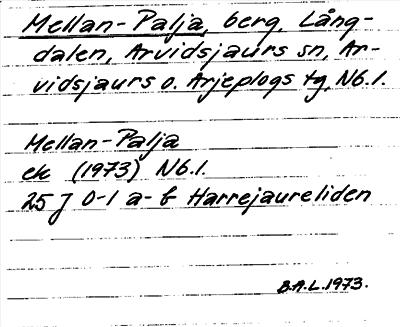 Mellan-Palja, berg, Lång-
dalen, Arvidsjaurs sn, Ar-
vidsjaurs o. Arjeplogs tg, Nb.l.
Mellan-Palja
ek (1973) Nb.l.
25 J 0-1 a-b Harrejaureliden
B.A.L. 1973.